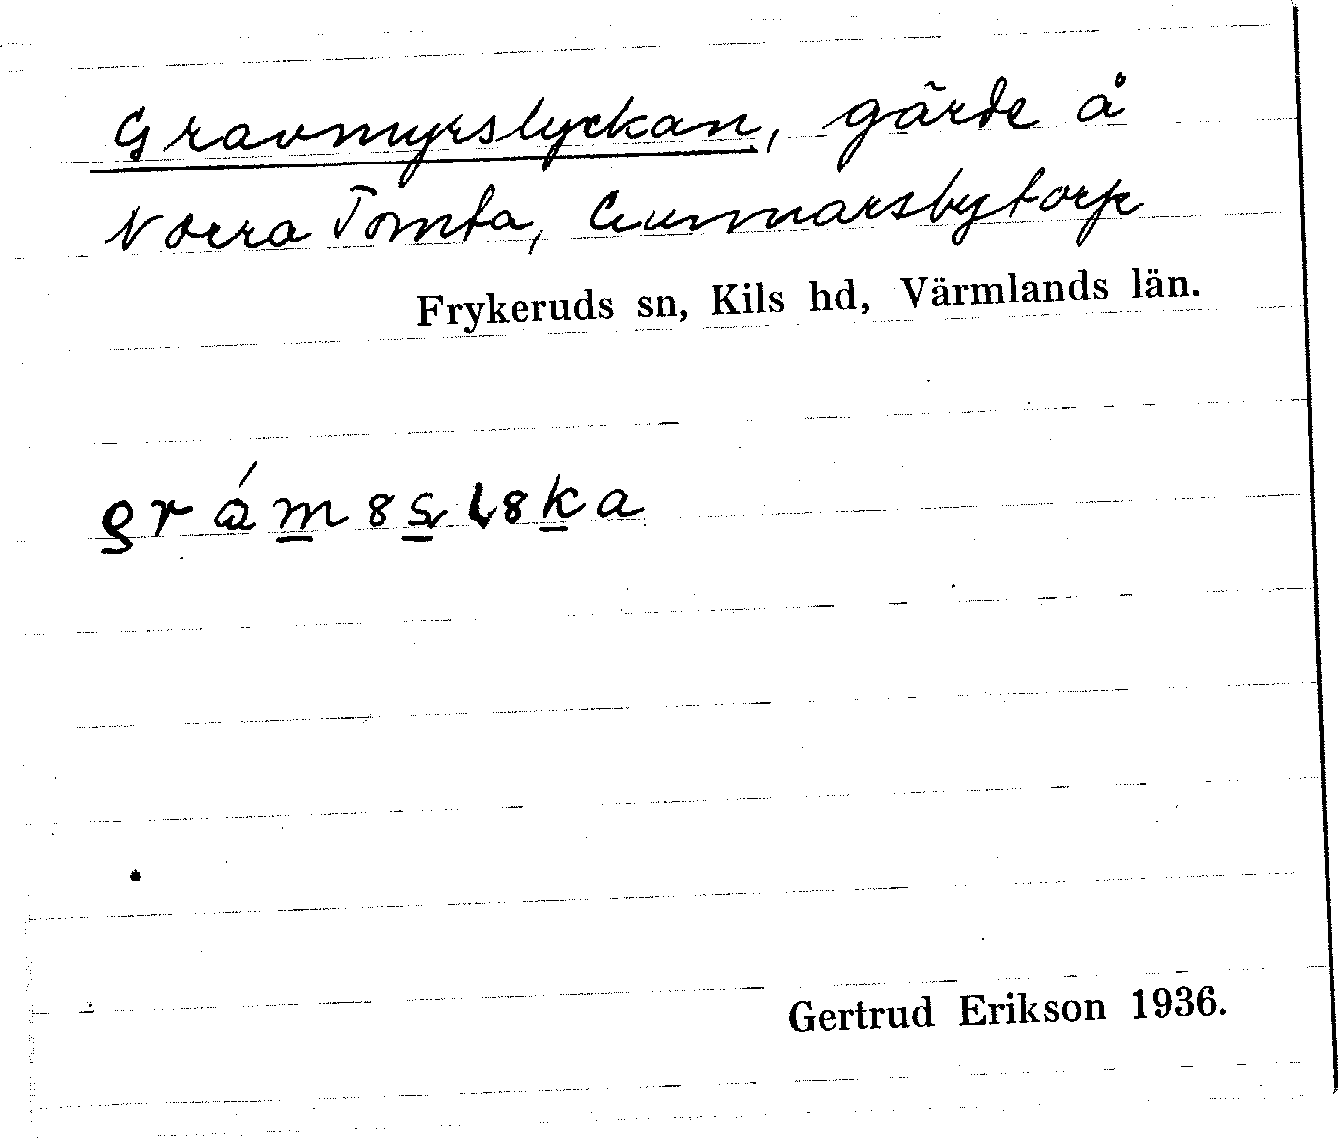 Gravmyrslyckan, gärde å
Norra Tomta, Gunnarsbytorp
Frykeruds sn, Kils hd, Värmlands län.
grám8sl8ka
Gertrud Erikson 1936.